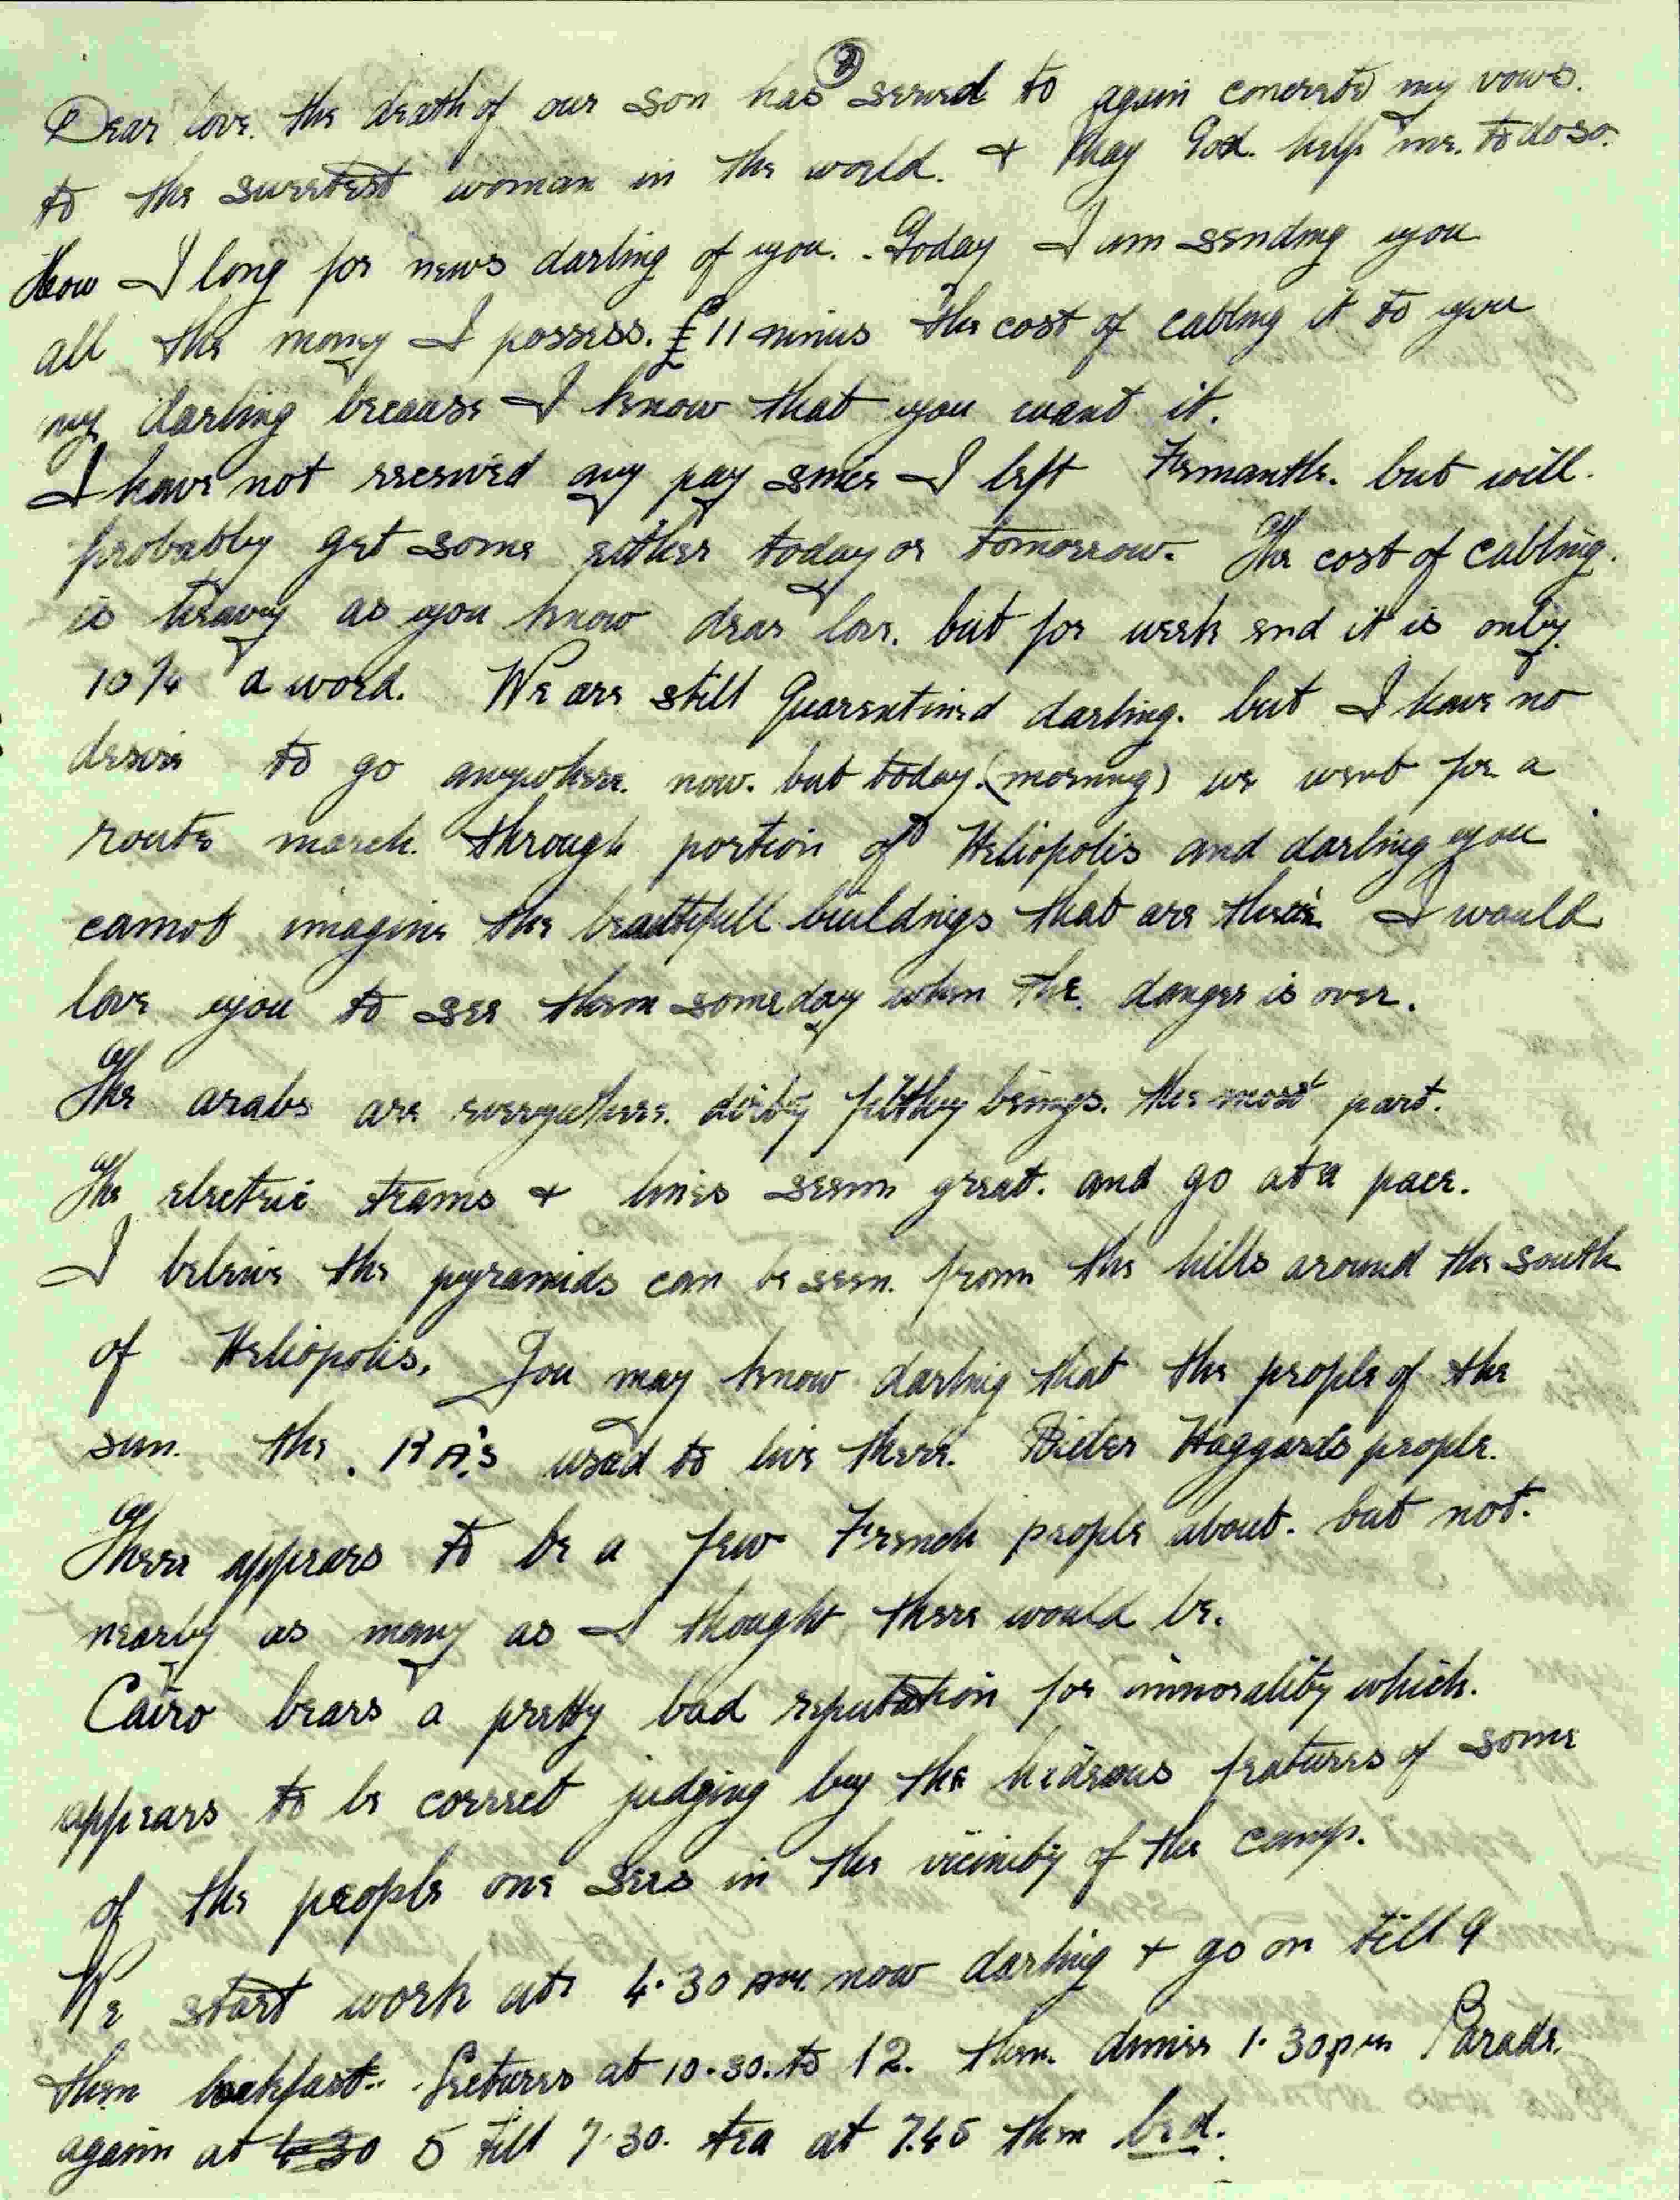 2
Dear love. the death of our son has served to again concrete my vows.
to the sweetest woman in the world. & May God. help me. to do so.
How I long for news darling of you. Today I am sending you
all the money I possess. £11 minus the cost of cabling it to you
my darling because I know that you want it.
I have not received any pay since I left Fremantle. but will
probably get some either today or tomorrow. The cost of cabling.
is heavy as you know dear love. but for week end it is only
a word. We are still Quarentined darling. but I have no
desire to go anywhere. now. but today. (morning) we went for a
route march. through portion of Heliopolis and darling you
cannot imagine the beautifull buildings that are there. I would
love you to see them someday when the danger is over.
The arabs are everywhere. dirty filthy beings. the most part.
The electric trams & lines seem great. and go at a pace.
I beleive the pyramids can be seen. from the hills around the south
of Heliopolis. You may know darling that the people of the
sun. the. RA's used to live there. Rider Haggards people.
There appears to be a few French people about. but not.
nearly as many as I thought there would be.
Cairo bears a pretty bad reputation for immorality which.
appears to be correct judging by the hideous features of some
of the people one sees in the vicinity of the camp.
We start work at 4.30 AM. now darling & go on till 9
then Lectures at 10.30. to 12. then. dinner 1.30 pm Parade.
again at 5 till 7.30. tea at 7.45 then bed.